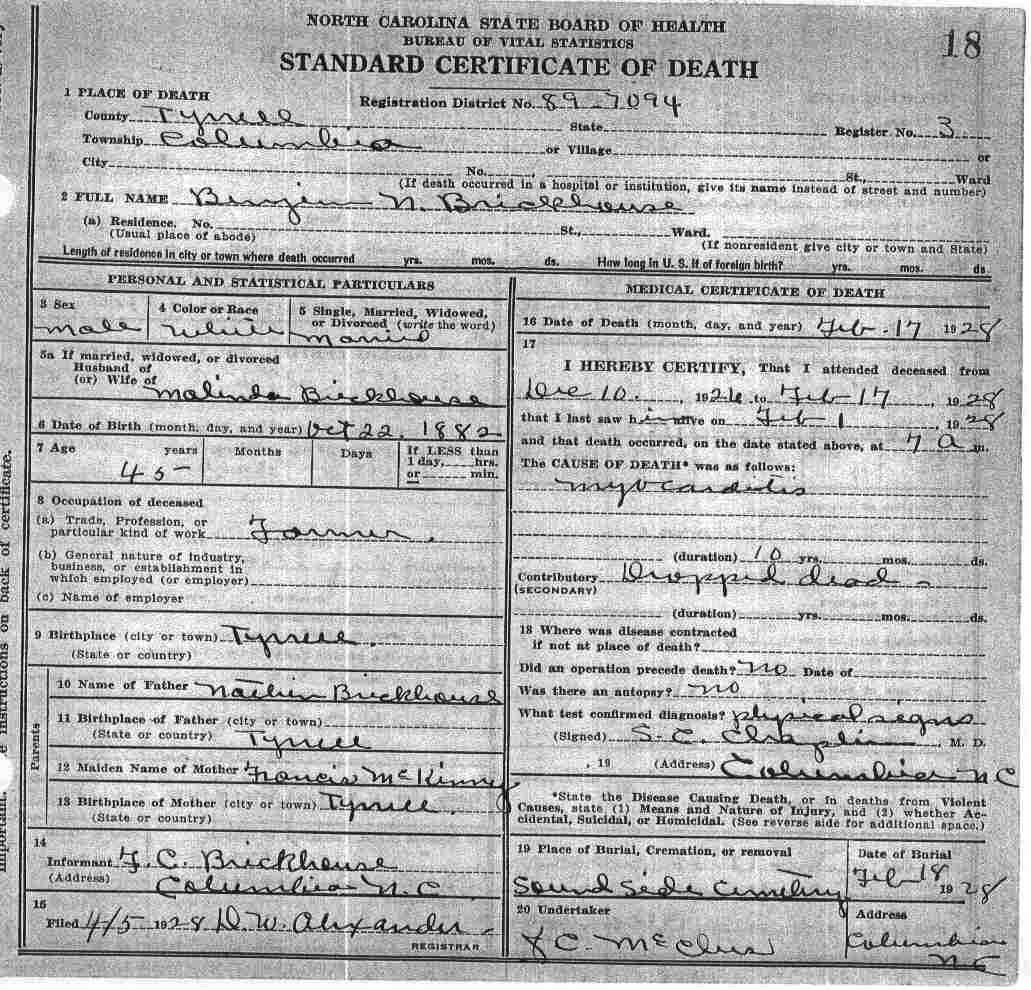 NORTH CAROLINA STATE BOARD OF HEALTH
BUREAU OF VITAL STATISTICS
18
STANDARD CERTIFICATE OF DEATH
1 PLACE OF DEATH
Registration District No. 89-7094
County Tyrrell State Register No. 3
Township Columbia or Village or
City No. St., Ward
(If death occurred in a hospital or institution, give its name instead of street and number)
2 FULL NAME N. Brickhouse
(a) Residence. No. St., Ward.
(Usual place of abode) (If nonresident give city or town and State)
Length of residence in city or town where death occurred yrs. mos. ds. How long in U. S. if of foreign birth? yrs. mos. ds.
PERSONAL AND STATISTICAL PARTICULARS
3 Sex
male
4 Color or Race
white
5 Single, Married, Widowed,
or Divorced (write the word)
married
5a If married, widowed, or divorced
Husband of
(or) Wife of
Malinda Brickhouse
6 Date of Birth (month, day, and year) Oct 22, 1882
7 Age years Months Days If LESS than
1 day, hrs.
or min.
45
8 Occupation of deceased
(a) Trade, Profession, or
particular kind of work Farmer.
(b) General nature of industry,
business, or establishment in
which employed (or employer)
(c) Name of employer
9 Birthplace (city or town) Tyrrell.
(State or country)
Parents
10 Name of Father Brickhouse
11 Birthplace of Father (city or town)
(State or country) Tyrrell
12 Maiden Name of Mother Francis McKinney
13 Birthplace of Mother (city or town) Tyrrell.
(State or country)
14
Informant C. Brickhouse
(Address) Columbia N.C
15
Filed 4/5 1928 D. W. Alexander
REGISTRAR
MEDICAL CERTIFICATE OF DEATH
16 Date of Death (month, day, and year) Feb-17 1928
17
I HEREBY CERTIFY, That I attended deceased from
Dec 10, 192 to Feb-17, 1928
that I last saw him alive on Feb 1, 1928
and that death occurred, on the date stated above, at 7 a m.
The CAUSE OF DEATH* was as follows:
myocarditis
(duration) 10 yrs. mos. ds.
Contributory Dropped dead -
(SECONDARY)
(duration) yrs. mos. ds.
18 Where was disease contracted
if not at place of death?
Did an operation precede death? no Date of
Was there an autopsy? no
What test confirmed diagnosis? physical signs
(Signed) S. C. Chaplin, M. D.
, 19 (Address) Columbia N C
*State the Disease Causing Death, or in deaths from Violent
Causes, state (1) Means and Nature of Injury, and (2) whether Ac-
cidental, Suicidal, or Homicidal. (See reverse side for additional space.)
19 Place of Burial, Cremation, or removal
Sound Side Cemetery
Date of Burial
Feb 18 1928
20 Undertaker
C. McClees
Address
Columbia
N C
instructions on back of certificate.
important.